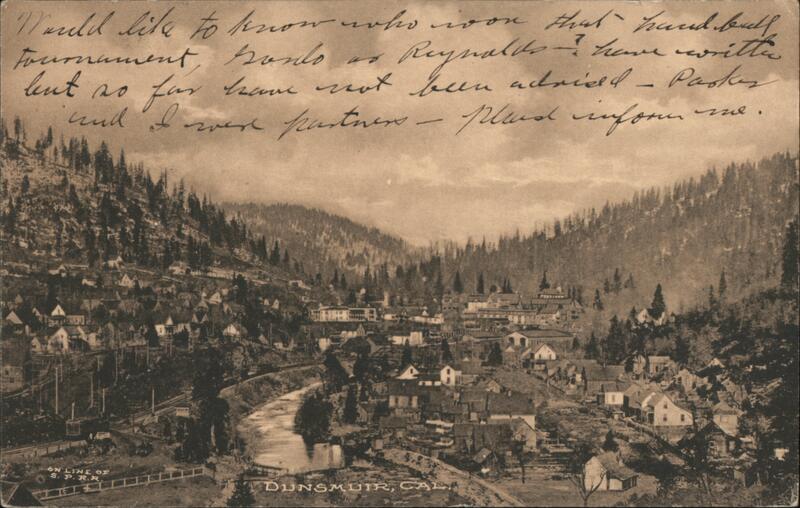 Would like to know who won that hand ball
tournament, Gonlo or Reynolds-? have written
but so far have not been advised - Parker
and I were partners - Please inform me.
ON LINE OF
S.P.R.R.
DUNSMUIR, CAL.